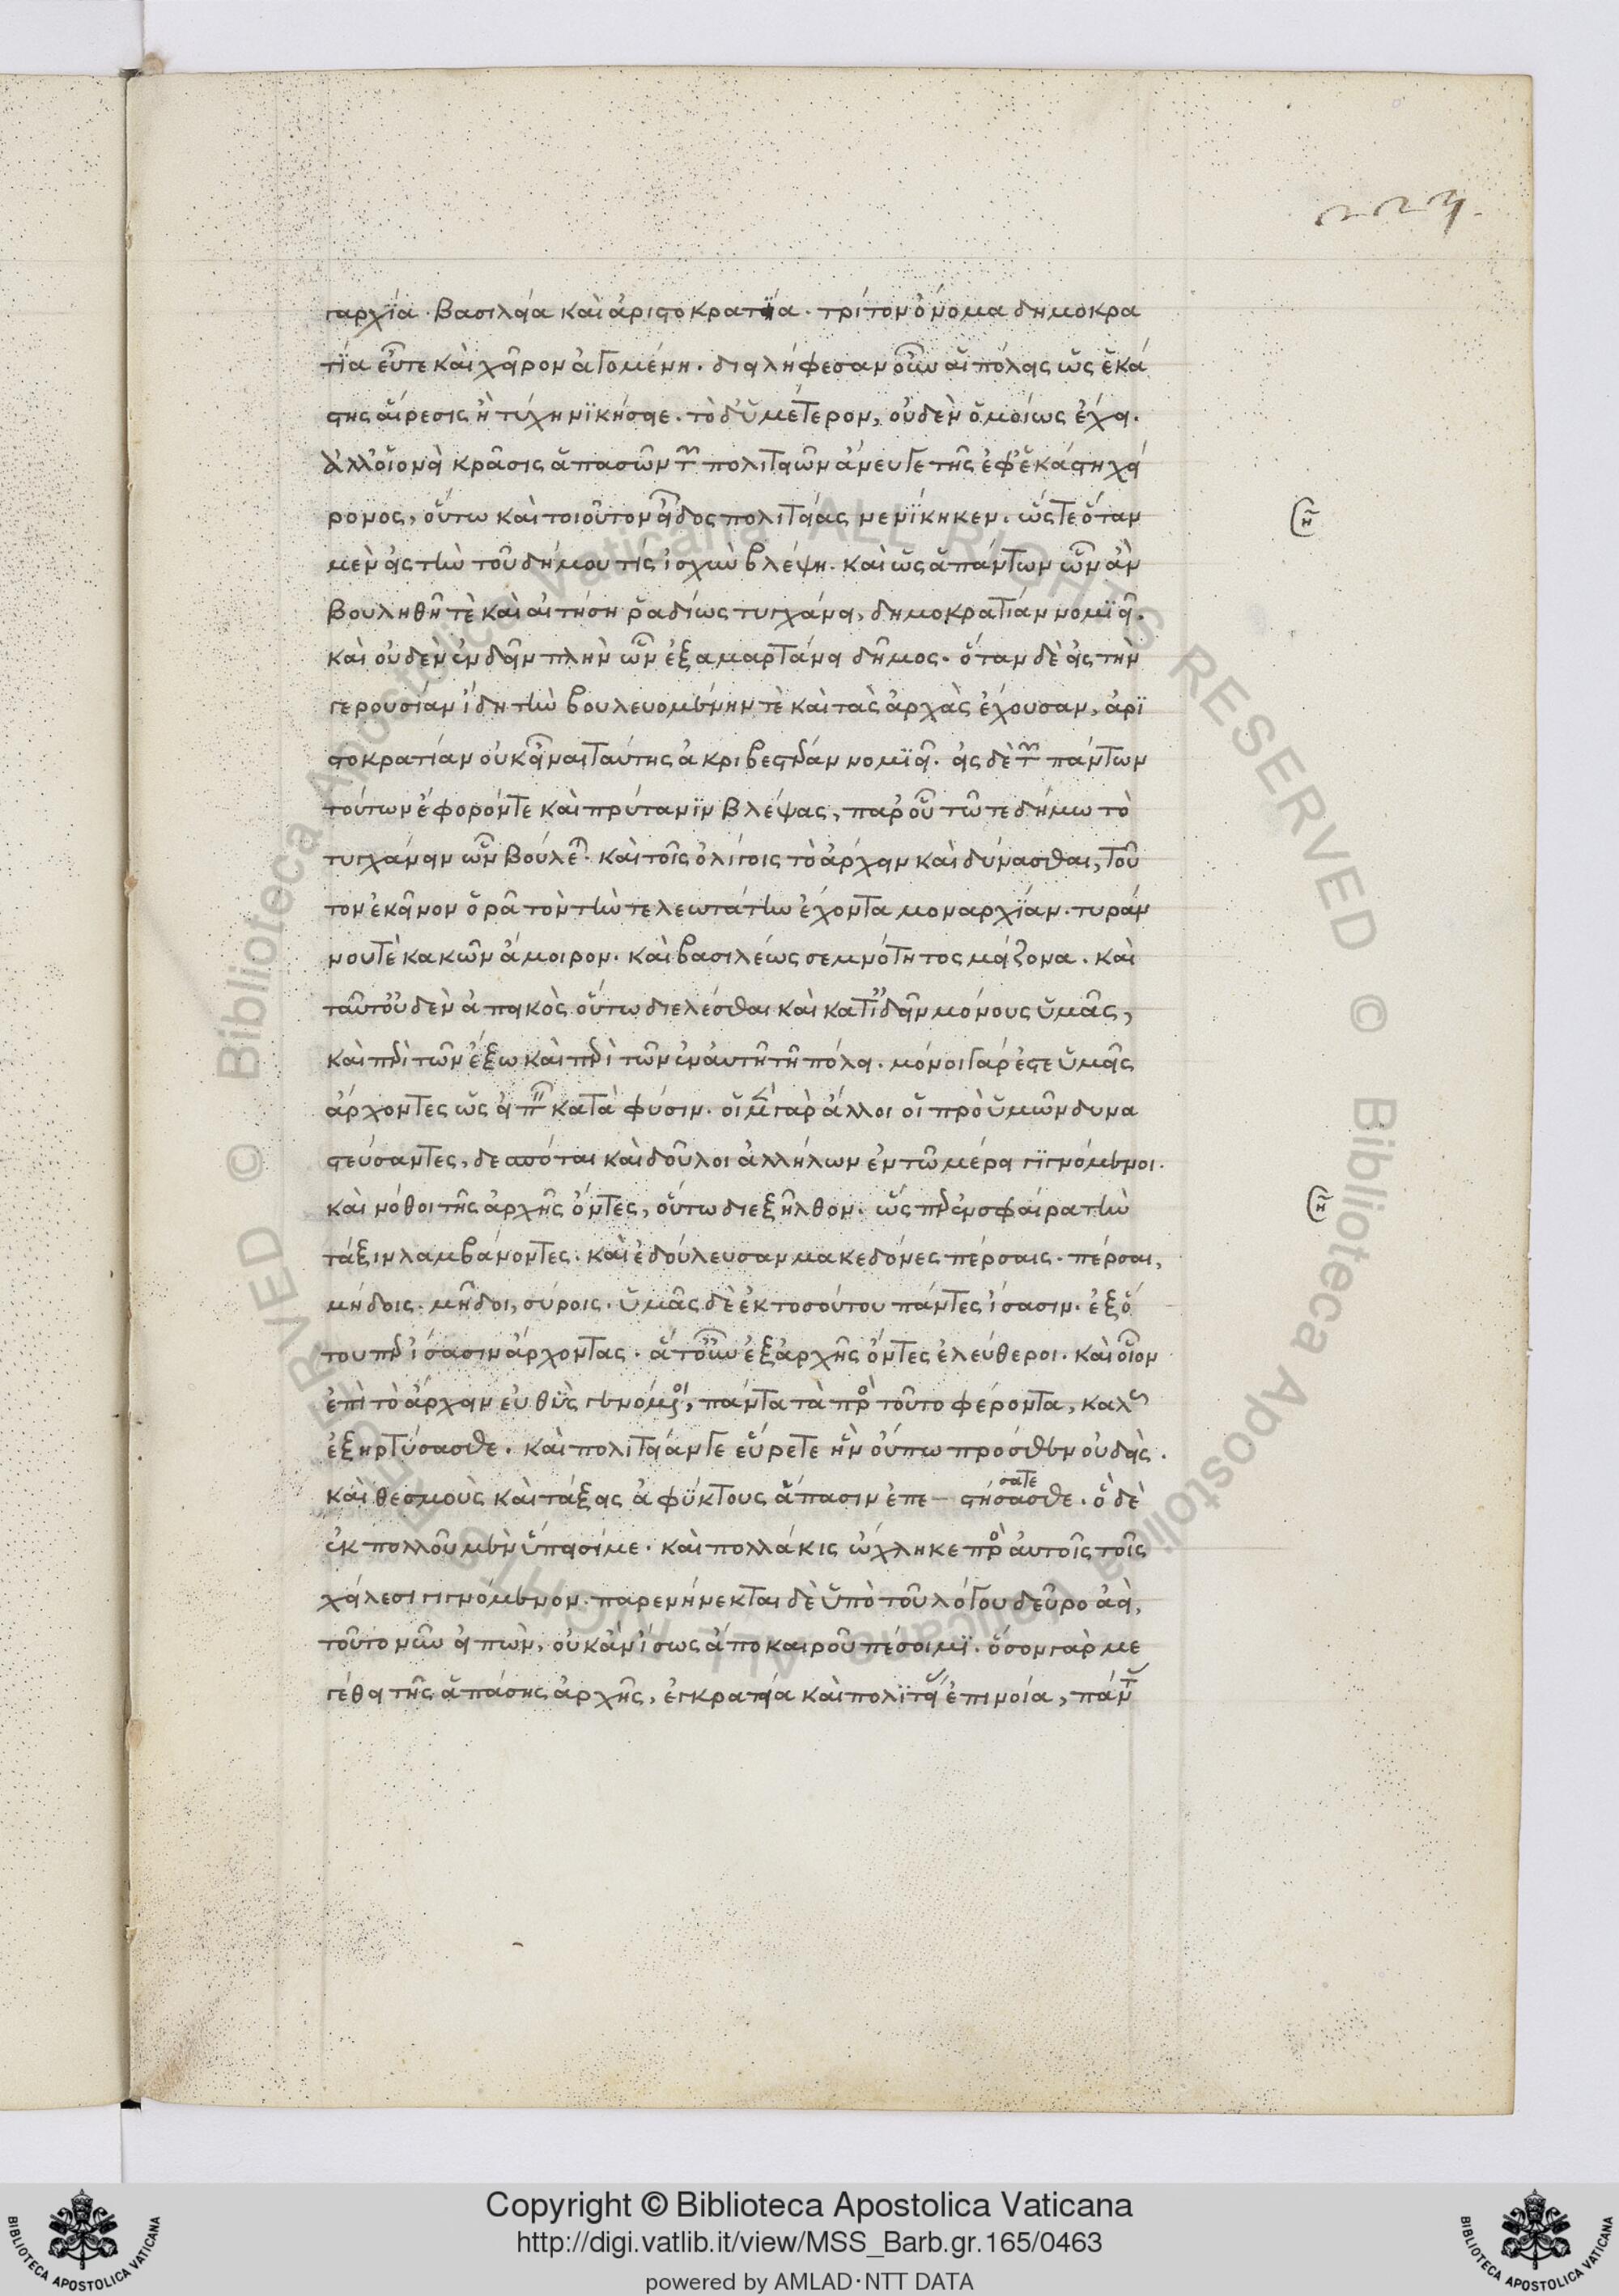 229.
γαρχία· βασιλεία καὶ ἀριστοκρατία· τρίτον ὄνομα δημοκρα
τία εὖτε καὶ χεῖρον ἀγομένη· διειλήφεσαν οὖν αἱ πόλεις ὡς ἑκά
στης αἵρεσις ἢ τύχη νικήσειε. τὸ δ' ὑμέτερον, οὐδὲν ὁμοίως ἔχει.
ἀλλ' οἱονεὶ κρᾶσις ἁπασῶν τῶν πολιτειῶν ἄνευ γε τῆς ἐφ' ἑκάστη χεί
ρονος, οὕτω καὶ τοιοῦτον εἶδος πολιτείας νενίκηκεν. ὥστε ὅταν
μὲν εἰς τὴν τοῦ δήμου τίς ἰσχὺν βλέψη. καὶ ὡς ἁπάντων ὧν ἂν
βουληθῆ τὲ καὶ αἰτήση ῥαδίως τυγχάνει, δημοκρατίαν νομιεῖ.
καὶ οὐδὲν ἐνδεῖν πλὴν ὧν ἐξαμαρτάνει δῆμος. ὅταν δὲ εἰς τὴν
γερουσίαν ἴδη τὴν βουλευομένην τὲ καὶ τὰς ἀρχὰς ἔχουσαν, ἀρι
στοκρατίαν οὐκ εἶναι ταύτης ἀκριβεστέραν νομιεῖ. εἰς δὲ τὸν πάντων
τούτων ἔφορόν τε καὶ πρύτανιν βλέψας, παρ' οὗ τῶ τε δήμω τὸ
τυγχάνειν ὧν βούλεται. καὶ τοῖς ὀλίγοις τὸ ἄρχειν καὶ δύνασθαι, τοῦ
τον ἐκεῖνον ὁρᾶ τὸν τὴν τελεωτάτην ἔχοντα μοναρχίαν. τυράν
νου τὲ κακῶν ἄμοιρον. καὶ βασιλέως σεμνότητος μείζονα. καὶ
ταῦτ' οὐδὲν ἀπεικὸς οὕτω διελέσθαι καὶ κατιδεῖν μόνους ὑμᾶς,
καὶ περὶ τῶν ἔξω καὶ περὶ τῶν ἐν αὐτῆ τῆ πόλει. μόνοι γάρ ἐστε ὑμεῖς
ἄρχοντες ὡς εἰπεῖν κατὰ φύσιν. οἱ μὲν γὰρ ἄλλοι οἱ πρὸ ὑμῶν δυνα
στεύσαντες, δεσπόται καὶ δοῦλοι ἀλλήλων ἐν τῶ μέρει γιγνόμενοι.
καὶ νόθοι τῆς ἀρχῆς ὄντες, οὕτω διεξῆλθον. ὥσπερ ἐν σφαίρα τὴν
τάξιν λαμβάνοντες. καὶ ἐδούλευσαν μακεδόνες πέρσαις. πέρσαι,
μήδοις. μῆδοι, σύροις. ὑμᾶς δὲ ἐκ τοσούτου πάντες ἴσασιν. ἐξ ὅ
του περ ἴσασιν ἄρχοντας. ἅτ' οὖν ἐξ ἀρχῆς ὄντες ἐλεύθεροι. καὶ οἷον
ἐπὶ τὸ ἄρχειν εὐθὺς γενόμενοι, πάντα τὰ πρὸς τοῦτο φέροντα, καλῶς
ἐξηρτύσασθε. καὶ πολιτείαν γε εὕρετε ἣν οὔπω πρόσθεν οὐδείς.
σατε
καὶ θεσμοὺς καὶ τάξεις ἀφύκτους ἅπασιν ἐπε – στήσασθε. ὃ δὲ
ἐκ πολλοῦ μὲν ὕπεισί με. καὶ πολλάκις ὤχληκε πρὸς αὐτοῖς τοῖς
χείλεσι γιγνόμενον. παρενήνεκται δὲ ὑπὸ τοῦ λόγου δεῦρο ἀεὶ,
τοῦτο νῦν εἰπὼν, οὐκ ἂν ἴσως ἄπο καιροῦ πέσοιμι. ὅσον γὰρ με
γέθει τῆς ἁπάσης ἀρχῆς, ἐγκρατεία καὶ πολιτείας ἐπινοία, πάντας
Copyright © Biblioteca Apostolica Vaticana
http://digi.vatlib.it/view/MSS_Barb.gr.165/0463
powered by AMLAD·NTT DATA